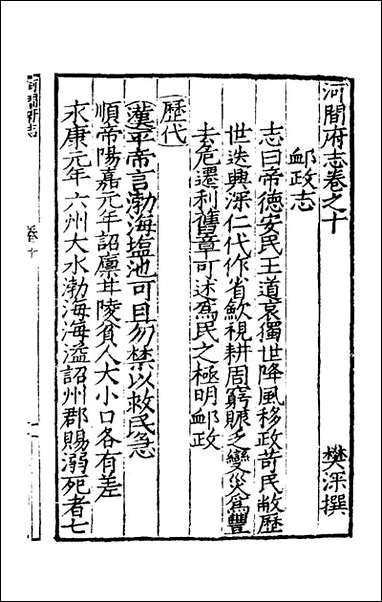 河間府志卷之十
樊深撰
䘏政志
志曰帝德安民王道哀獨世降風移政苛民敝歷
世迭興深仁代作省歛視耕周窮賑乏變災爲豐
去危遷利舊章可述爲民之極明䘏政
歷代
漢平帝言渤海塩池可且勿禁以救民急
順帝陽嘉元年詔廪甘陵貧人大小口各有差
永康元年六州大水渤海海溢詔州郡賜溺死者七
河間府志
卷十
一